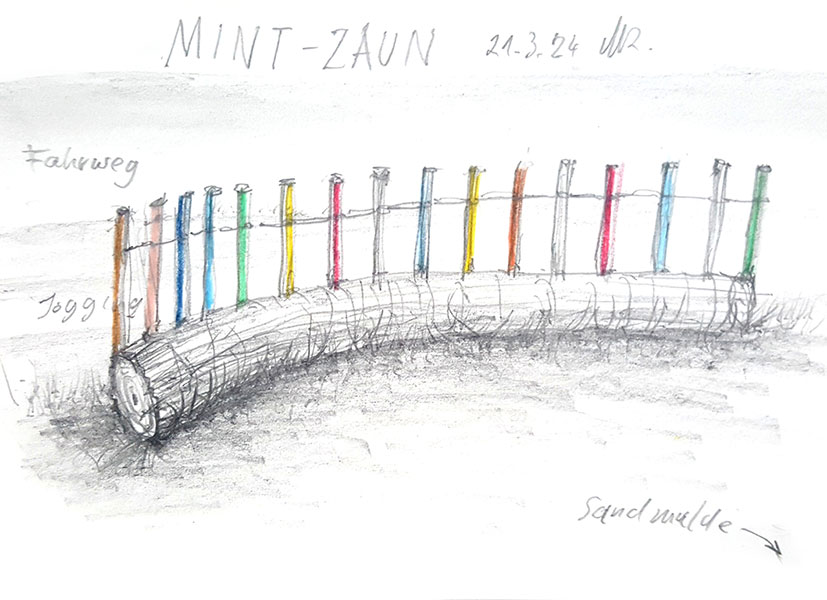 MINT-ZAUN 21.3.24 MR.
Fahrweg
Jogging
Sandmulde